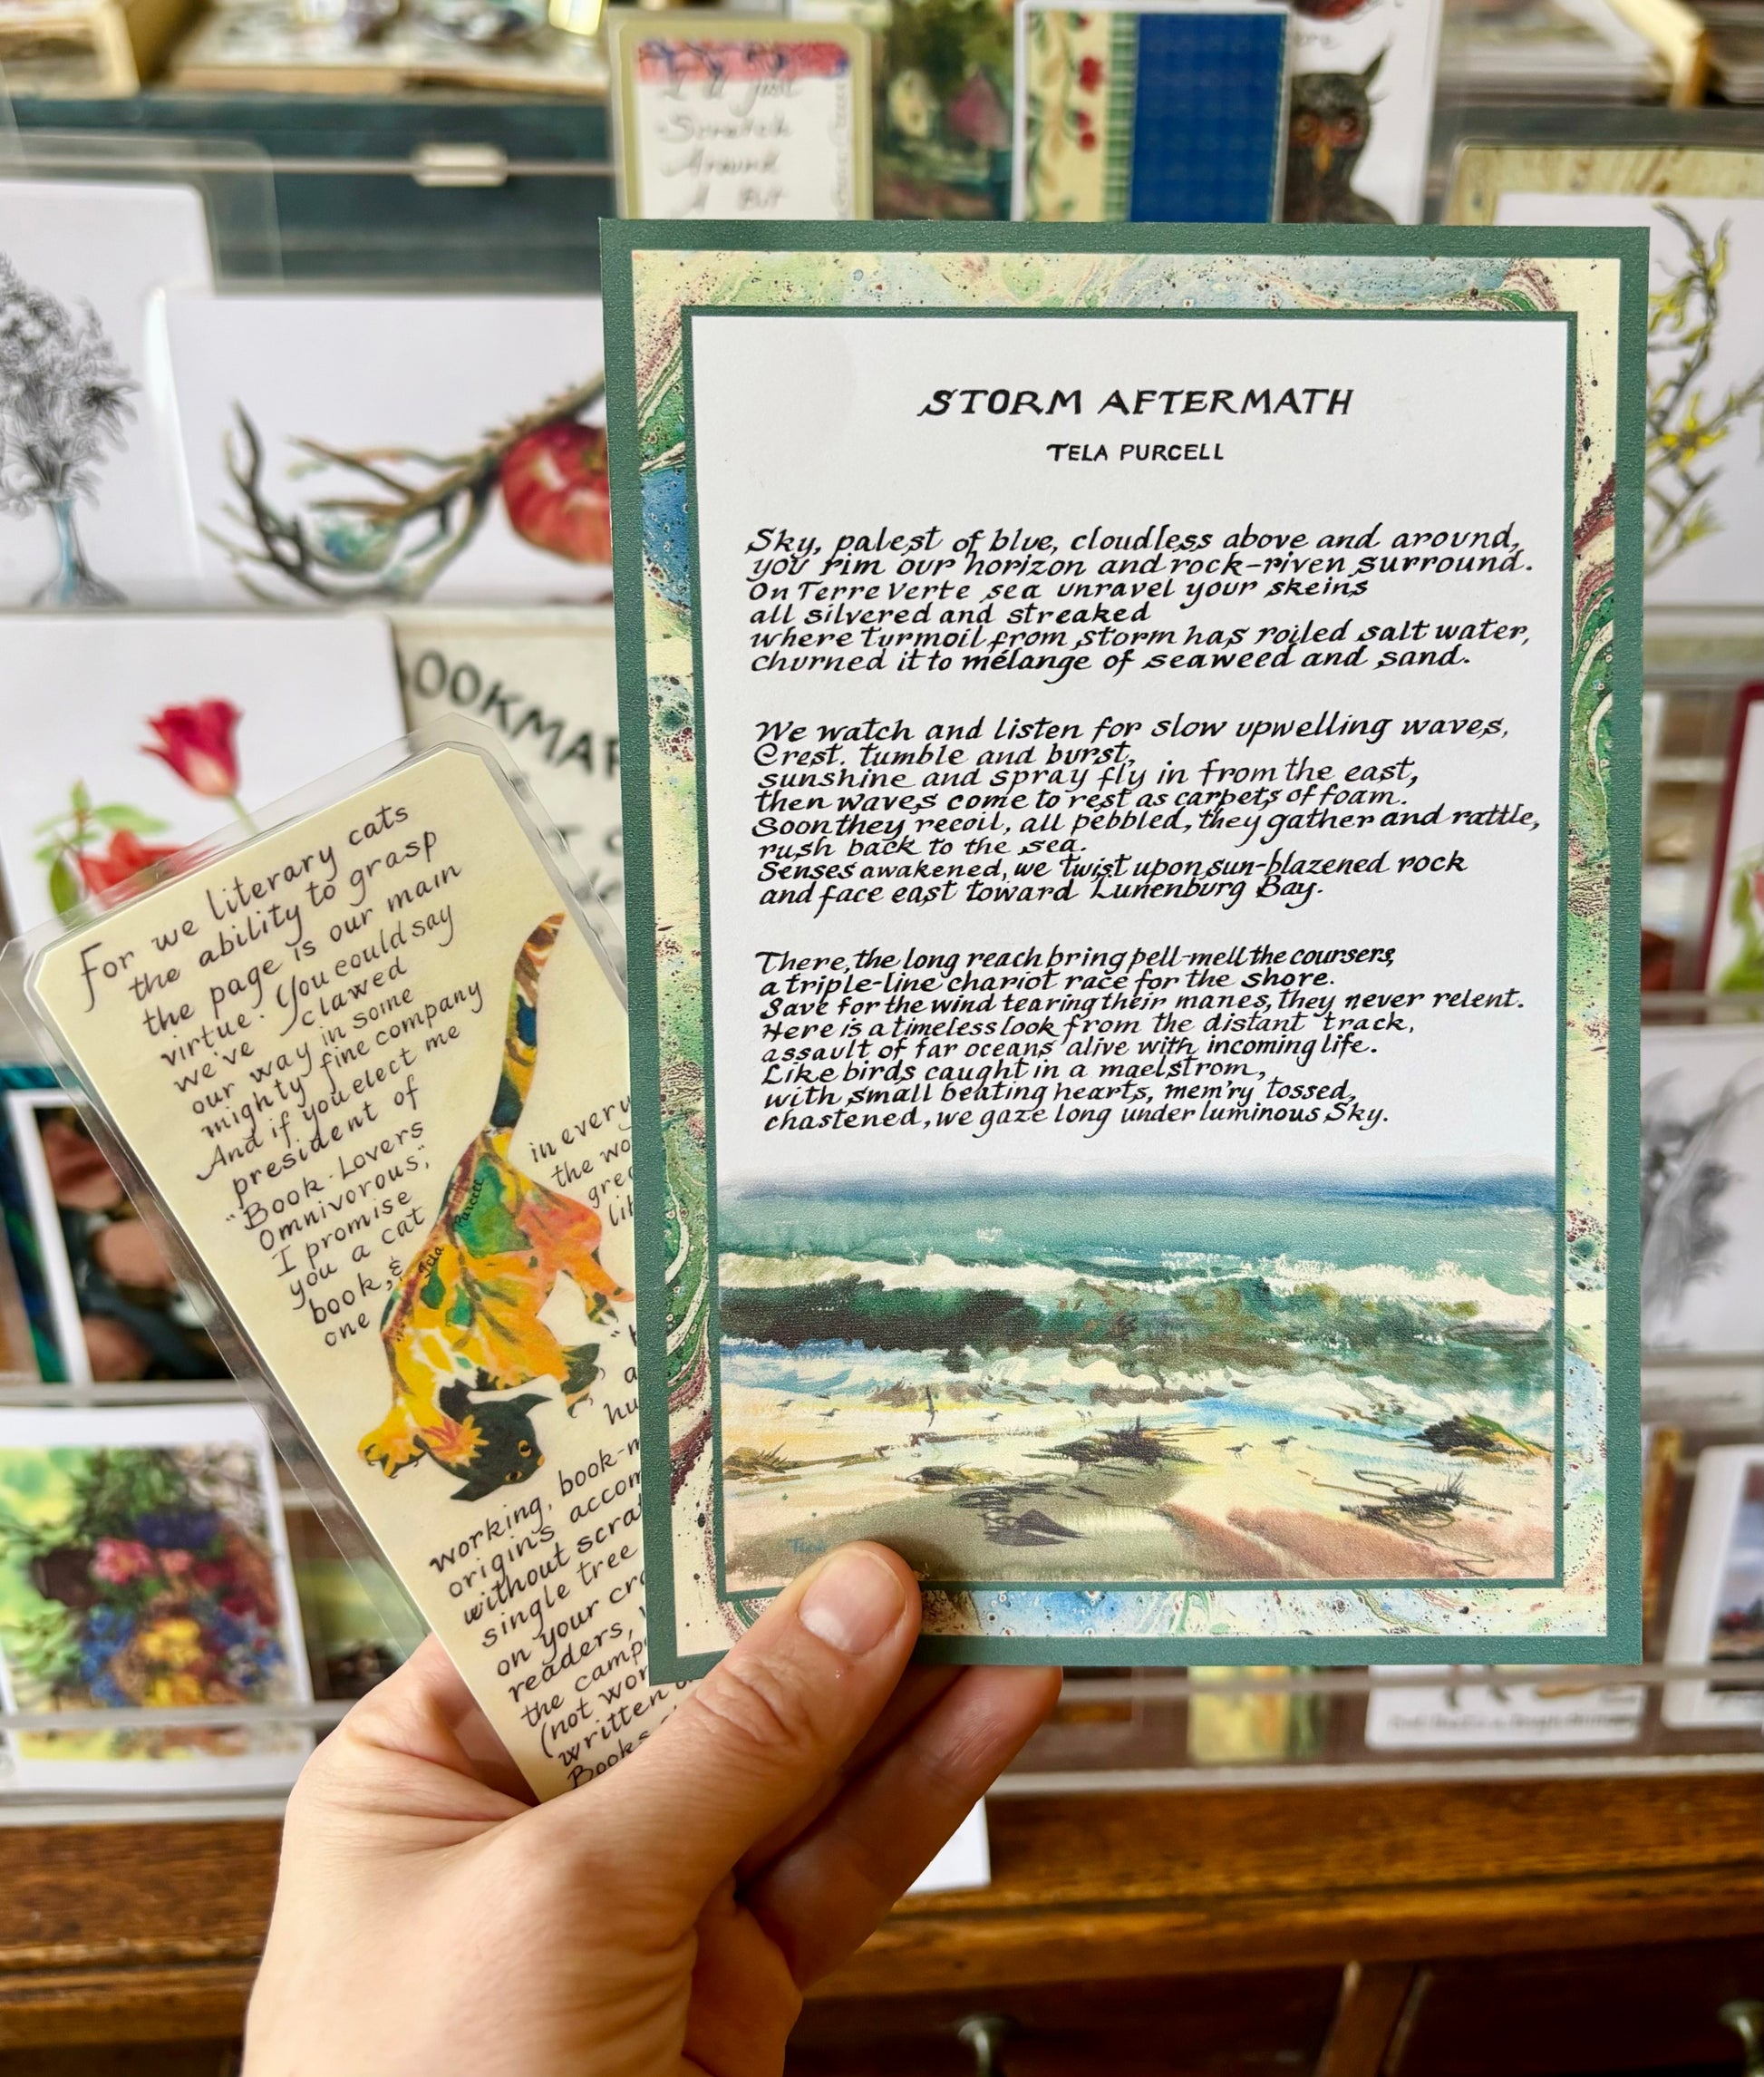 I'll just
Scratch
Around
A Bit
STORM AFTERMATH
TELA PURCELL
Sky, palest of blue, cloudless above and around,
you rim our horizon and rock-riven surround.
On Terre Verte sea unravel your skeins
all silvered and streaked
where turmoil from storm has roiled salt water,
churned it to mélange of seaweed and sand.
We watch and listen for slow upwelling waves,
Crest. tumble and burst,
sunshine and spray fly in from the east,
then waves come to rest as carpets of foam.
Soon they recoil, all pebbled, they gather and rattle,
rush back to the sea.
Senses awakened, we twist upon sun-blazened rock
and face east toward Lunenburg Bay.
There, the long reach bring pell-mell the coursers,
a triple-line chariot race for the shore.
Save for the wind tearing their manes, they never relent.
Here is a timeless look from the distant track,
assault of far oceans alive with incoming life.
Like birds caught in a maelstrom,
with small beating hearts, mem'ry tossed,
chastened, we gaze long under luminous Sky.
For we literary cats
the ability to grasp
the page is our main
virtue. You could say
we've clawed
our way in some
mighty fine company
And if you elect me
president of
"Book-Lovers
Omnivorous,"
I promise
you a cat
book, &
one
Tela Purcell
in every
the
working, book-
origins
without
single tree
on your
readers,
the
(not
written
Books